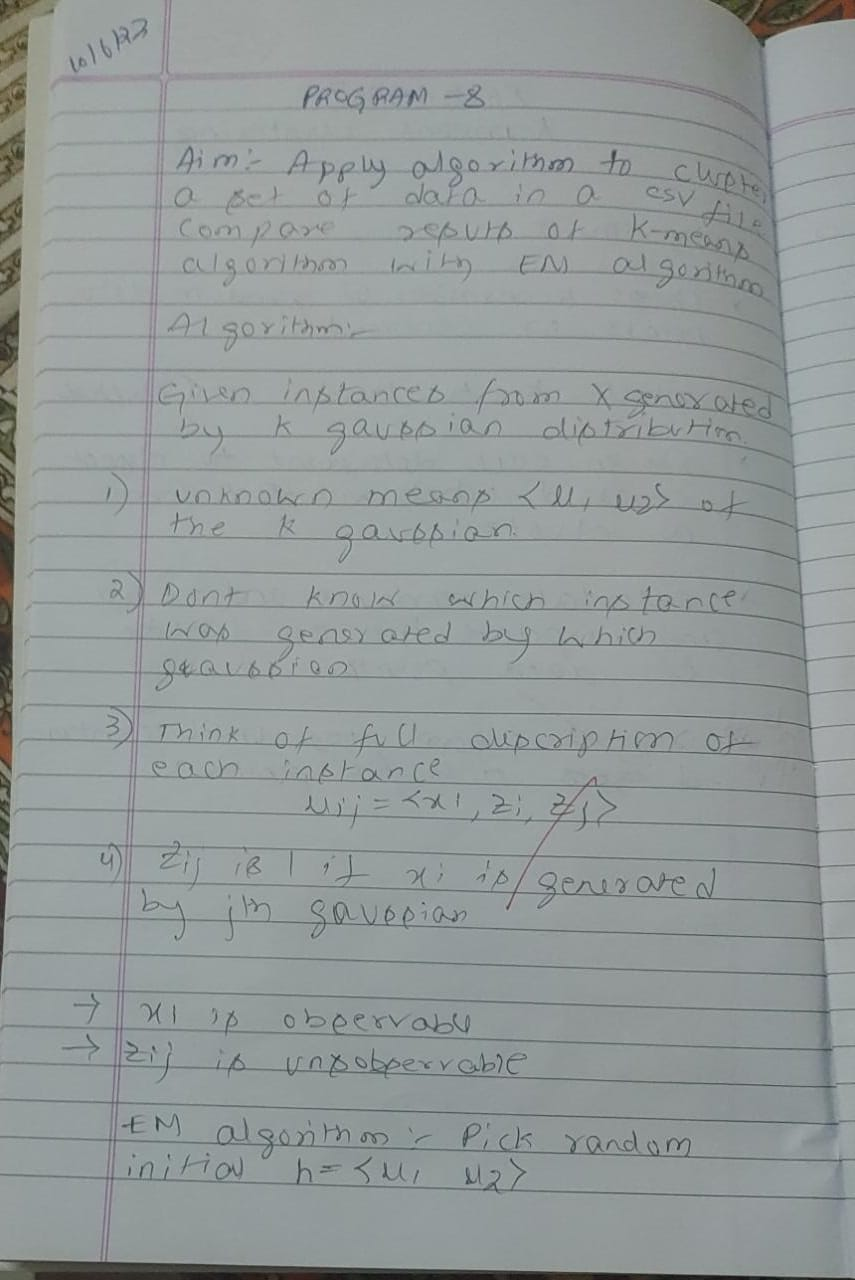 10/6/23
PROGRAM - 8
Aim:- Apply algorithm to cluster
a set of data in a csv file
Compare results of K-means
algorithm with EM algorithm
Algorithm:-
Given instances from X generated
by K gaussian distribution.
1) unknown means <u1, u2> of
the k gaussian.
2) Dont know which instance
was generated by which
gaussian
3) Think of full discription of
each instance
uij = <xi, zi, zj>
4) Zij is 1 if xi is generated
by jth gaussian
→ xi is observable
→ zij is unobservable
EM algorithm :- Pick random
initial h = <u1, u2>